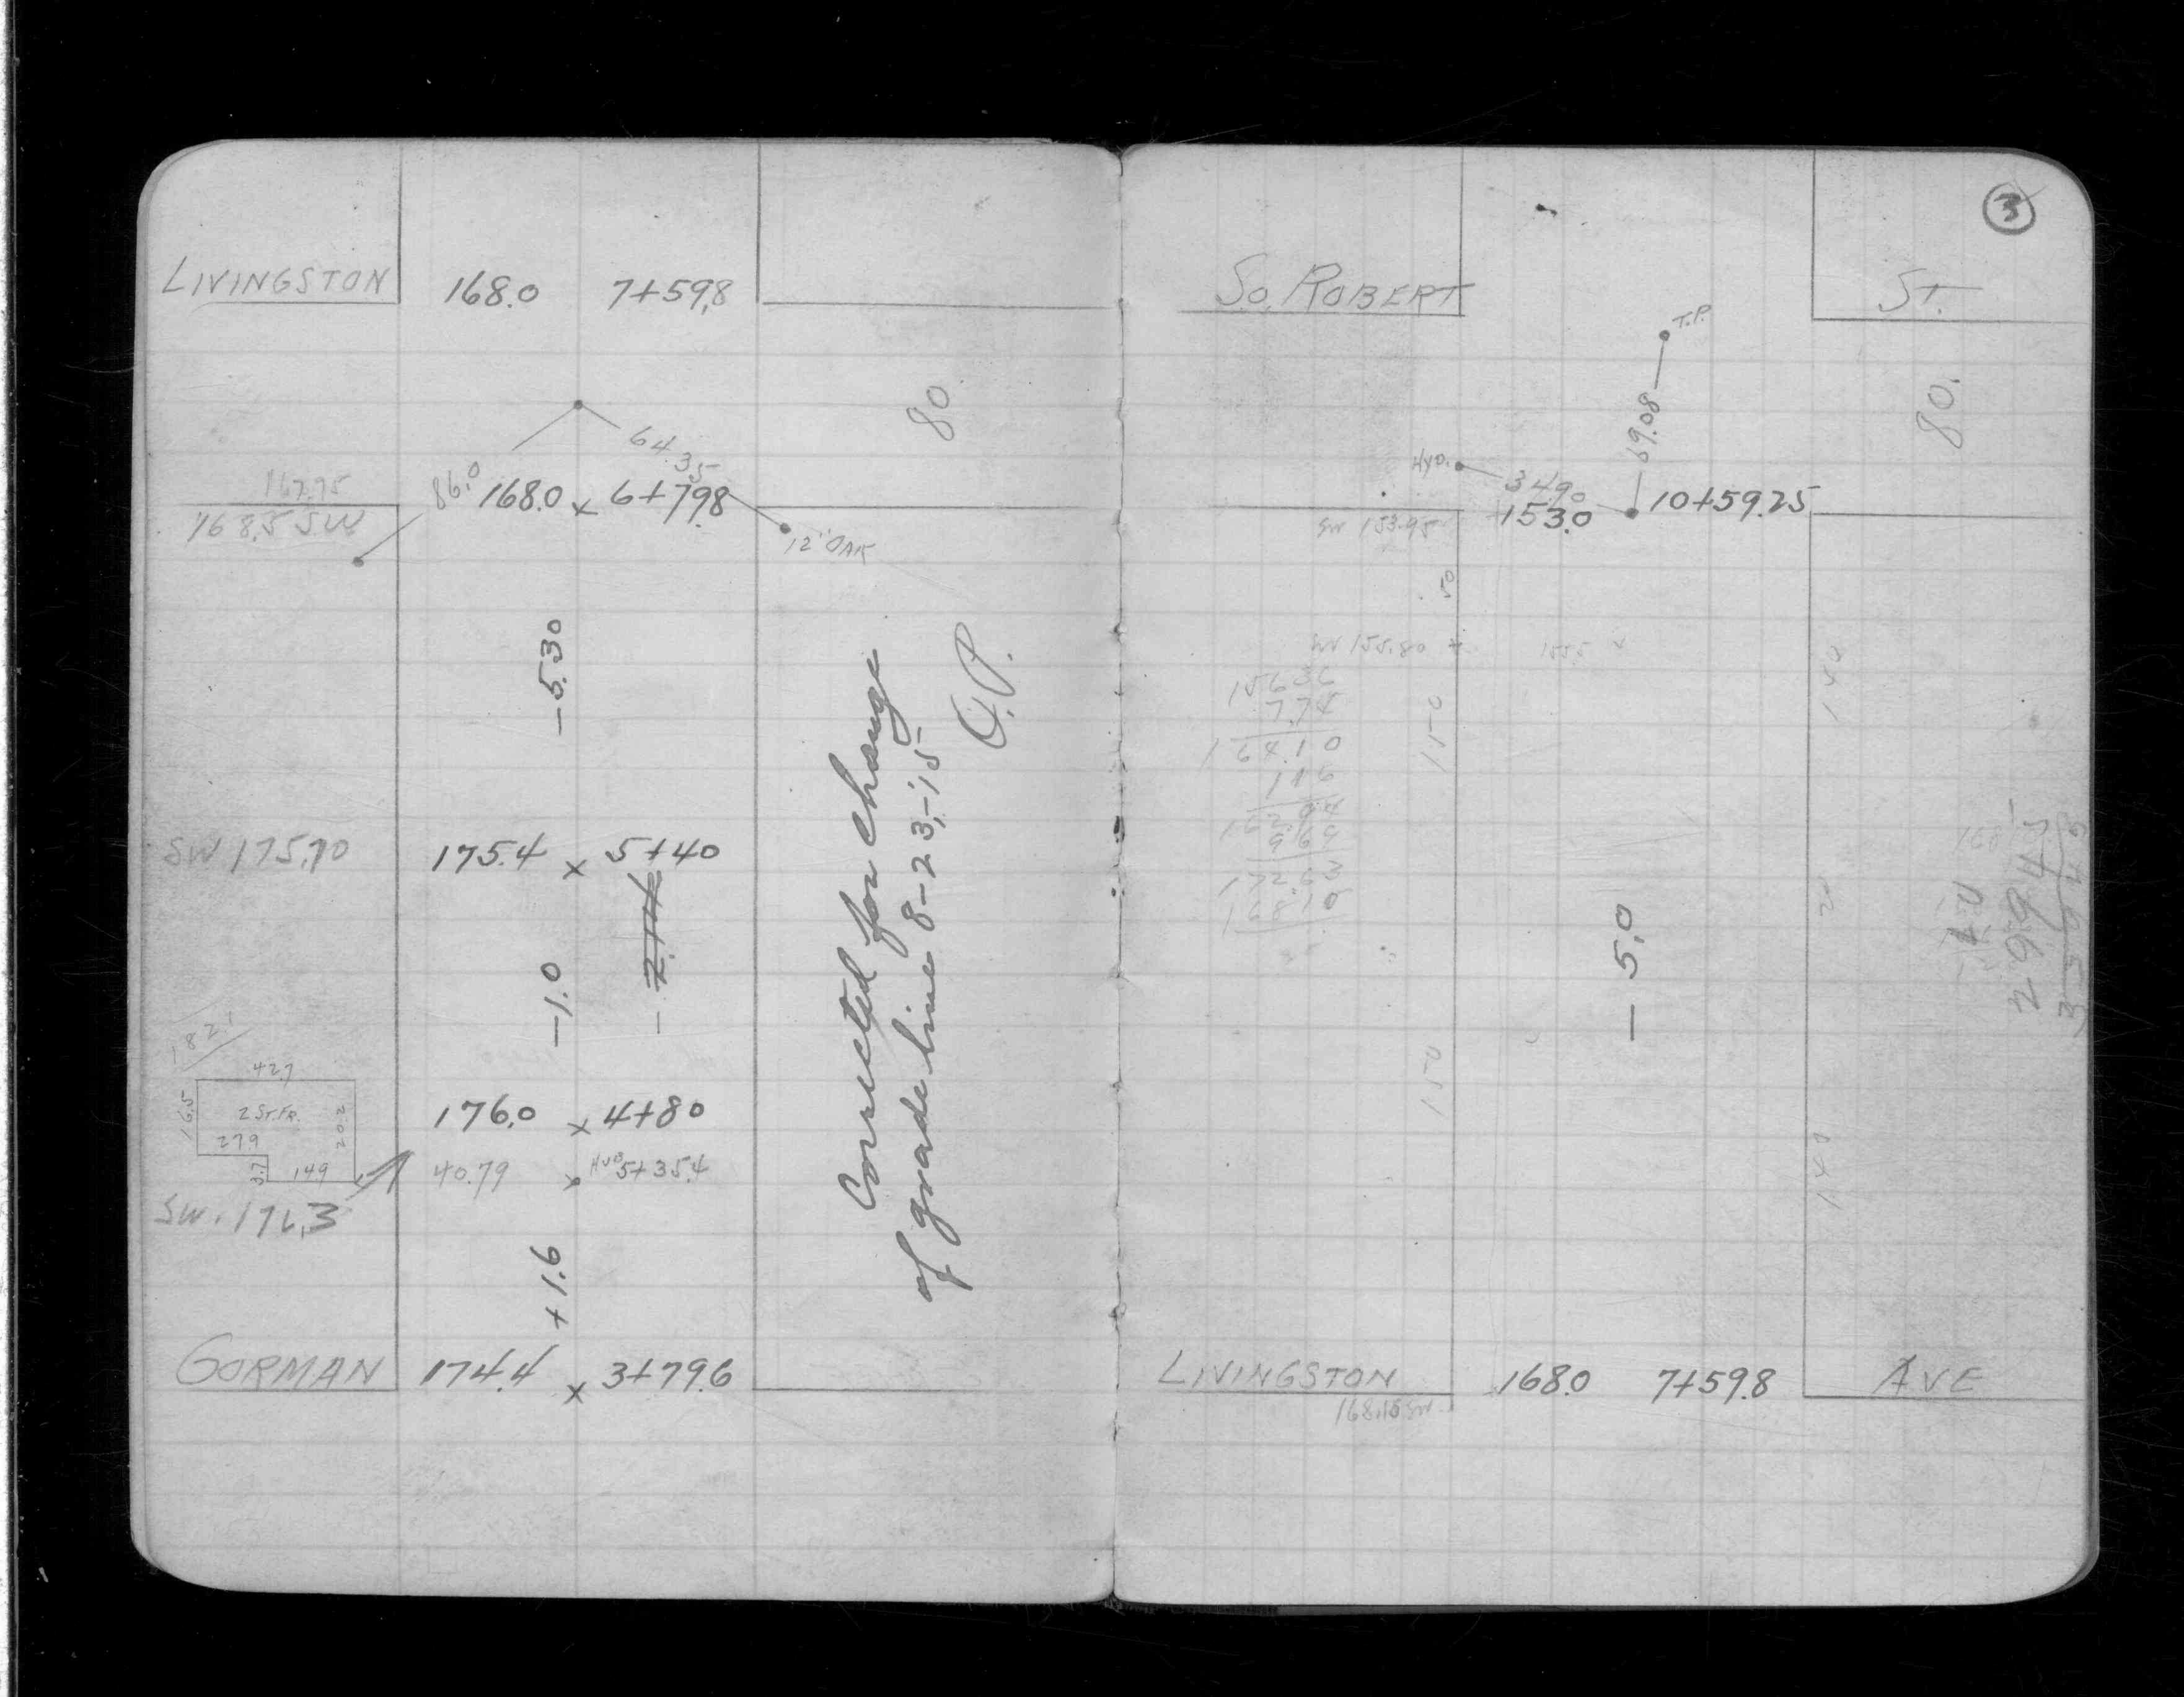 LIVINGSTON 168.0 7+59.8
80
64.35
86.0
167.95
168.0 x 6+79.8
168.5 SW
12" OAK
-5.30
SW 175.70
175.4 x 5+40
-2.14
-1.0
Corrected for change
of grade line 8-23,-'15
O.P.
1821
42.7
16.5
2 ST. FR.
20.2
27.9
3.7
14.9
176.0 x 4+80
40.79 x HUB 5+35.4
SW. 176.3
+1.6
GORMAN 174.4 x 3+79.6
3
SO. ROBERT ST.
T.P.
69.08
80.
HYD.
34.90
153.0 10+59.25
SW 153.95
50
SW 155.80 + 155.5 x
156.36
7.74
164.10
1.16
162.94
9.69
172.63
168.10
150
140
20
-5.0
150
140
2994.5
LIVINGSTON 168.0 7+59.8 AVE
168.10 SW